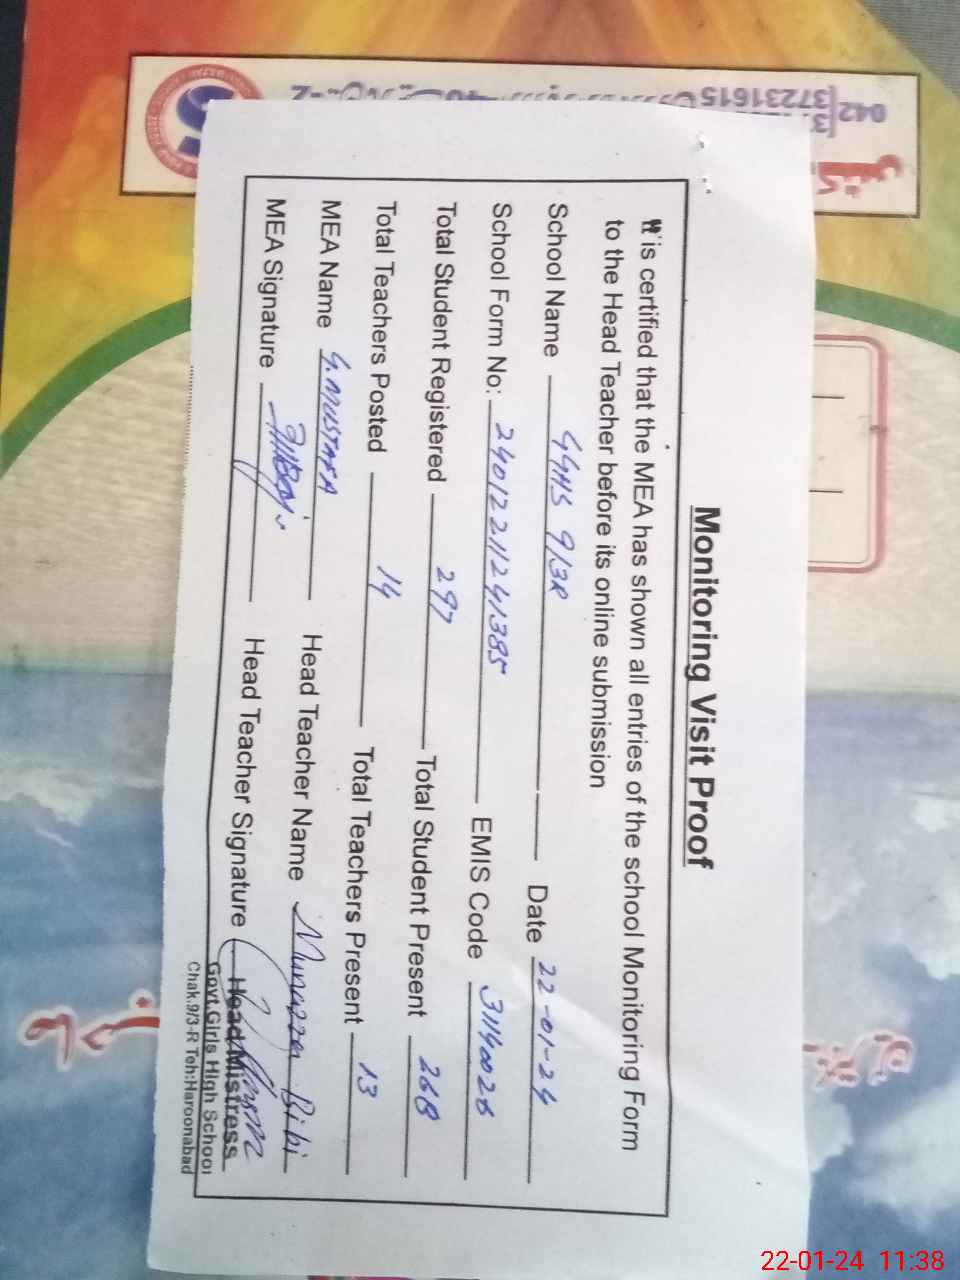 Monitoring Visit Proof
It is certified that the MEA has shown all entries of the school Monitoring Form
to the Head Teacher before its online submission
School Name GGHS 9/3R Date 22-01-24
School Form No: 24012211241385 EMIS Code 31140026
Total Student Registered 297 Total Student Present 268
Total Teachers Posted 14 Total Teachers Present 13
MEA Name G.MUSTAFA Head Teacher Name Munazza Bibi
MEA Signature Head Teacher Signature
Head Mistress
Govt.Girls High School
Chak.9/3-R Teh:Haroonabad
042
37231615
22-01-24 11:38